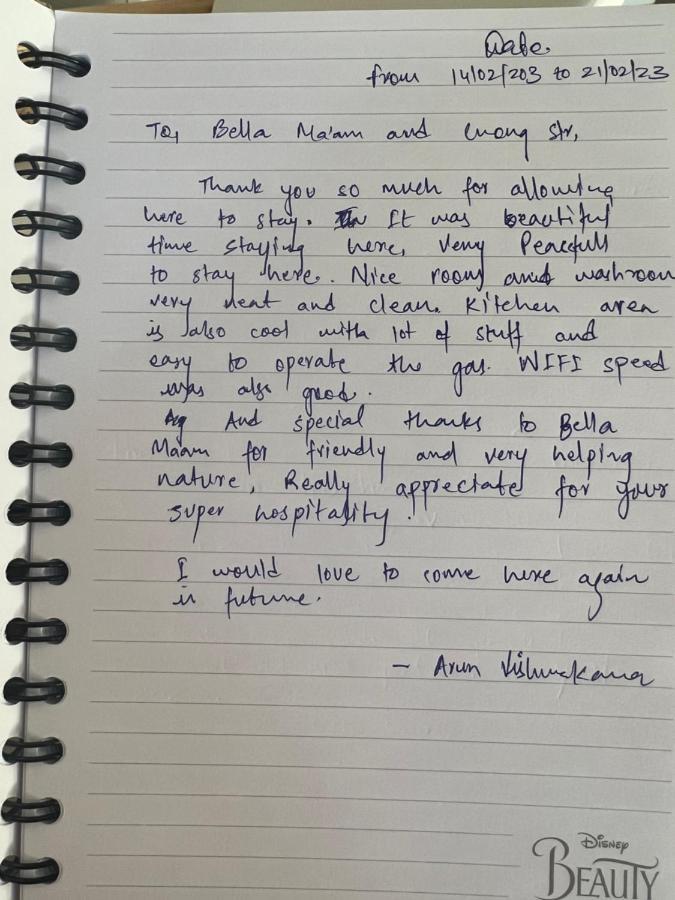 Date.
from 14/02/203 to 21/02/23
To, Bella Ma'am and Sir,
Thank you so much for allowing
here to stay. It was beautiful
time staying here, Very Peacefull
to stay here. Nice room and washroom
very neat and clean. Kitchen area
is also cool with lot of stuff and
easy to operate the gas. WIFI speed
was also good.
And special thanks to Bella
Maam for friendly and very helping
nature, Really appreciate for your
super hospitality.
I would love to come here again
in future.
- Arun Vishwakarma
DISNEY
BEAUTY